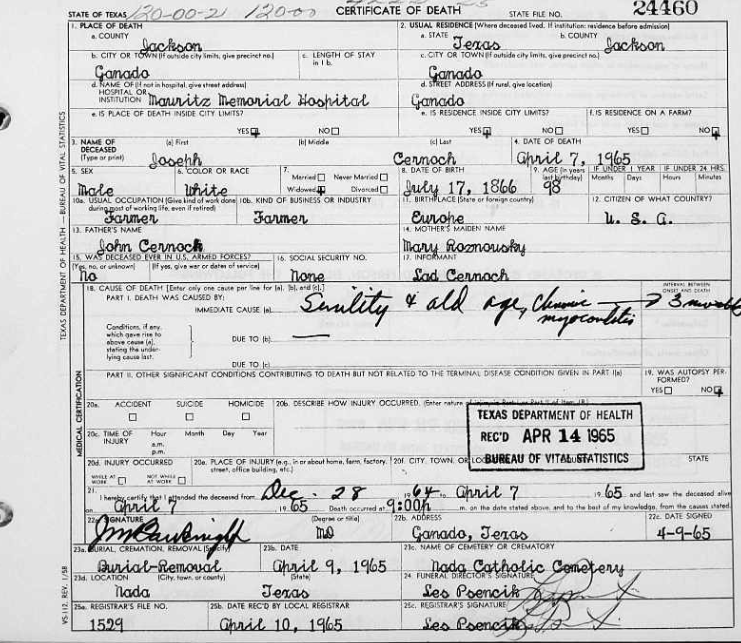 STATE OF TEXAS 120-00-21 120-00 CERTIFICATE OF DEATH STATE FILE NO. 24460
1. PLACE OF DEATH 2. USUAL RESIDENCE (Where deceased lived. If institution: residence before admission)
a. COUNTY Jackson a. STATE Texas b. COUNTY Jackson
b. CITY OR TOWN (If outside city limits, give precinct no.) c. LENGTH OF STAY in 1 b. c. CITY OR TOWN (If outside city limits, give precinct no.)
Ganado Ganado
d. NAME OF (If not in hospital, give street address) HOSPITAL OR INSTITUTION Mauritz Memorial Hospital d. STREET ADDRESS (If rural, give location) Ganado
e. IS PLACE OF DEATH INSIDE CITY LIMITS? e. IS RESIDENCE INSIDE CITY LIMITS? f. IS RESIDENCE ON A FARM?
YES NO YES NO YES NO
3. NAME OF DECEASED (Type or print) (a) First (b) Middle (c) Last 4. DATE OF DEATH
Joseph Cernoch April 7, 1965
5. SEX 6. COLOR OR RACE 7. Married Never Married Widowed Divorced 8. DATE OF BIRTH 9. AGE (In years last birthday) IF UNDER 1 YEAR Months Days IF UNDER 24 HRS. Hours Minutes
Male White July 17, 1866 98
10a. USUAL OCCUPATION (Give kind of work done during most of working life, even if retired) 10b. KIND OF BUSINESS OR INDUSTRY 11. BIRTHPLACE (State or foreign country) 12. CITIZEN OF WHAT COUNTRY?
Farmer Farmer Europe U. S. A.
13. FATHER'S NAME 14. MOTHER'S MAIDEN NAME
John Cernoch Mary Roznovsky
15. WAS DECEASED EVER IN U.S. ARMED FORCES? (Yes, no, or unknown) (If yes, give war or dates of service) 16. SOCIAL SECURITY NO. 17. INFORMANT
No None Lad Cernoch
18. CAUSE OF DEATH [Enter only one cause per line for (a), (b), and (c).] INTERVAL BETWEEN ONSET AND DEATH
PART I. DEATH WAS CAUSED BY:
IMMEDIATE CAUSE (a) Senility & old age, Chronic myocarditis 3
Conditions, if any, which gave rise to above cause (a), stating the underlying cause last.
DUE TO (b)
DUE TO (c)
PART II. OTHER SIGNIFICANT CONDITIONS CONTRIBUTING TO DEATH BUT NOT RELATED TO THE TERMINAL DISEASE CONDITION GIVEN IN PART I(a) 19. WAS AUTOPSY PERFORMED?
YES NO
20a. ACCIDENT SUICIDE HOMICIDE 20b. DESCRIBE HOW INJURY OCCURRED. (Enter nature of injury in Part I or Part II of item 18.)
20c. TIME OF INJURY Hour Month Day Year
a.m.
p.m.
TEXAS DEPARTMENT OF HEALTH
REC'D APR 14 1965
BUREAU OF VITAL STATISTICS
20d. INJURY OCCURRED WHILE AT WORK NOT WHILE AT WORK 20e. PLACE OF INJURY (e.g., in or about home, farm, factory, street, office building, etc.) 20f. CITY, TOWN, OR STATE
21. I hereby certify that I attended the deceased from Dec. 28 1964 to April 7 1965 and last saw the deceased alive
on April 7 1965 Death occurred at 9:00p m. on the date stated above; and to the best of my knowledge, from the causes stated.
22a. SIGNATURE (Degree or title) 22b. ADDRESS 22c. DATE SIGNED
MD Ganado, Texas 4-9-65
23a. BURIAL, CREMATION, REMOVAL (Specify) 23b. DATE 23c. NAME OF CEMETERY OR CREMATORY
Burial-Removal April 9, 1965 Nada Catholic Cemetery
23d. LOCATION (City, town, or county) (State) 24. FUNERAL DIRECTOR'S SIGNATURE
Nada Texas Les Psencik
25a. REGISTRAR'S FILE NO. 25b. DATE REC'D BY LOCAL REGISTRAR 25c. REGISTRAR'S SIGNATURE
1529 April 10, 1965 Les Psencik
TEXAS DEPARTMENT OF HEALTH—BUREAU OF VITAL STATISTICS
MEDICAL CERTIFICATION
VS-112, REV. 1/58